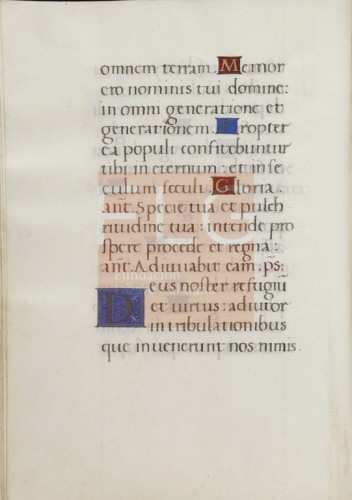 omnem terram. Memor
ero nominis tui domine:
in omni generatione et
generationem. Propter
ea populi confitebuntur
tibi in eternum: et in se
culum seculi. Gloria.
añt. Specie tua et pulch
ritudine tua: intende pro
spere procede et regna:
añt. Adiuvabit eam. ps:
Deus noster refugiū
et virtus: adiutor
in tribulationibus
que invenerunt nos nimis.
FLG
Fundación